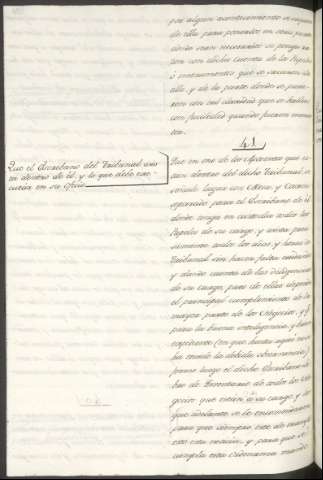 por algun acontecimiento se saquen
de ella para ponerlos en otras partes
donde sean necesarios se ponga ra-
zon con dicha cuenta de los Papeles
ó instrumentos que se sacaren de
alli, y de la parte donde se pusie-
ren con tal claridad que se hallen
con facilidad quando fueren menes-
ter.
41
Que el Escribano del Tribunal asis-
ta dentro de él, y lo que debe exe-
cutar en su Oficio
Que en uno de los Aposentos que es-
tan dentro del dicho Tribunal, se
señale lugar con Mesa, y Caxon
separado para el Escribano de él
donde tenga en custodia todos los
Papeles de su cargo, y asista pre-
cisamente todos los dias, y horas de
Tribunal sin hacer falta ninguna
y dando cuenta de las diligencias
de su cargo, pues de ellas depende
el principal cumplimiento de la
mayor parte de los Negocios, y
para la buena inteligencia, y buen
expediente (en que hasta aqui no
ha tenido la debida observancia)
luego el dicho Escribano
de Inventario de todos los
que están á su cargo, y
que adelante se le encomendaren
para que siempre esté
esta razon, y para que se
cumpla esta ordenanza